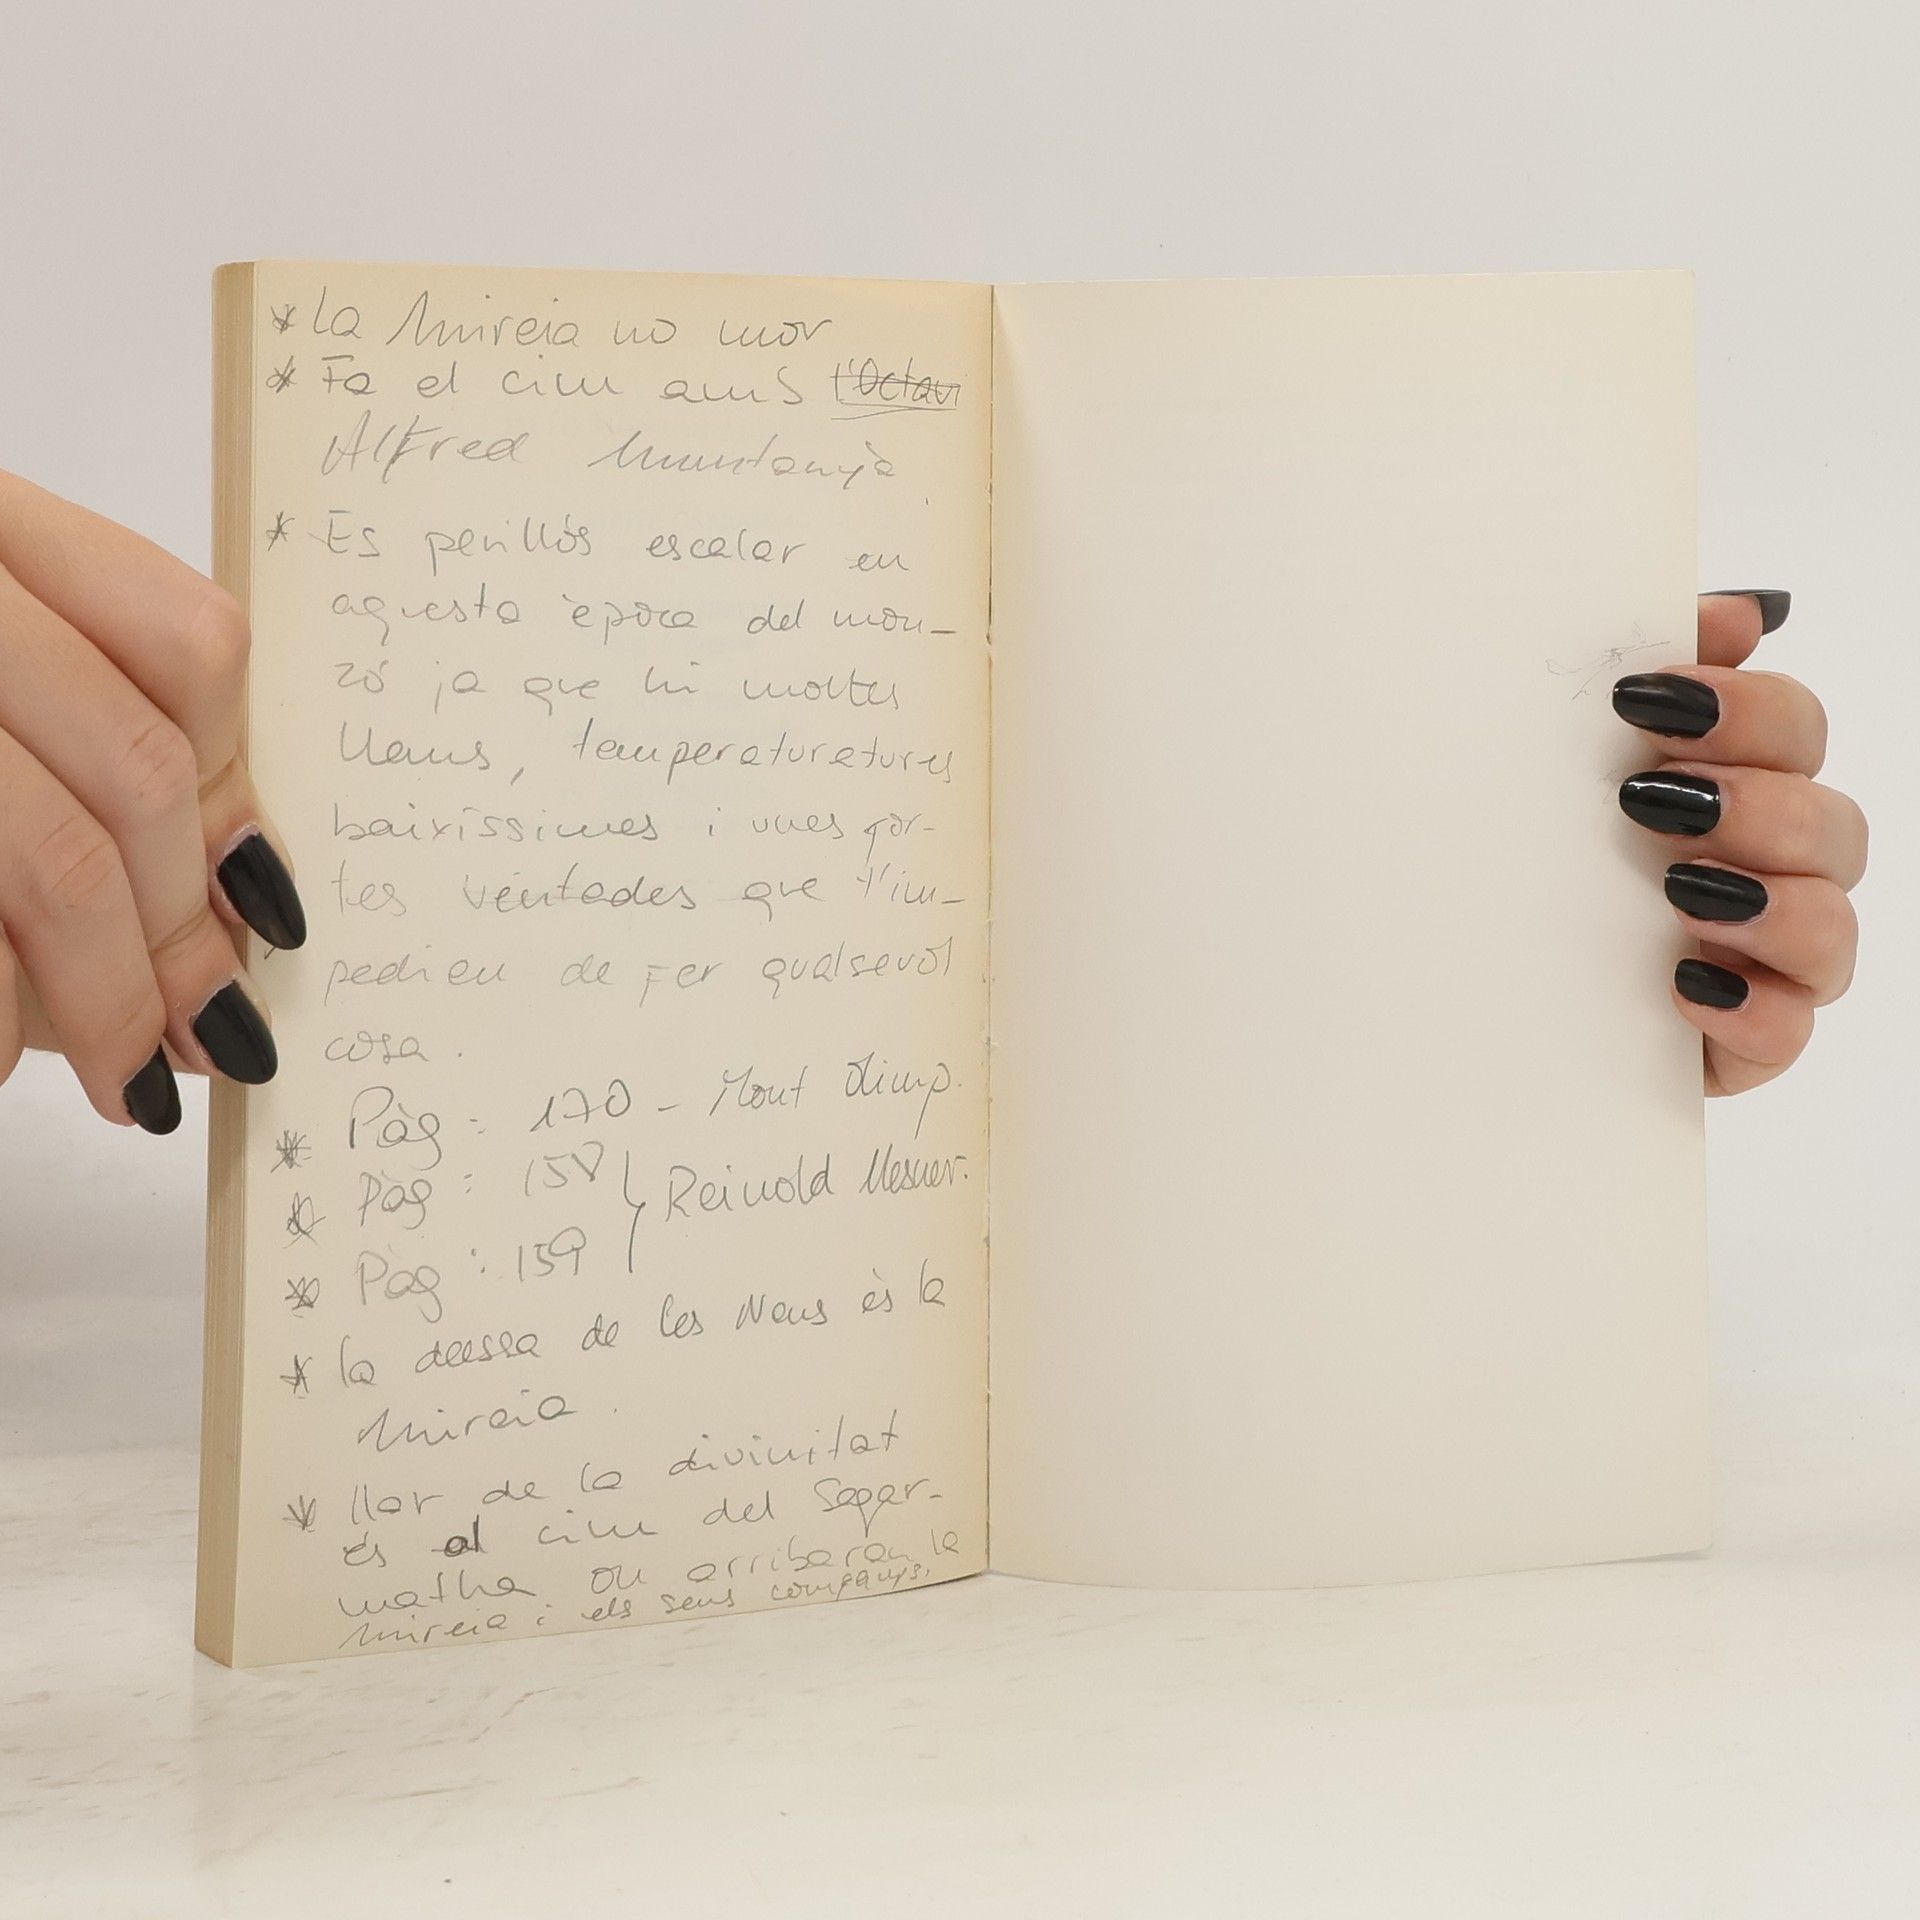 * La Mireia no mor
* Fa el cim amb l'Octavi
Alfred Muntanyà
* Es perillós escalar en
aquesta època del mon-
zó ja que hi moltes
Neus, temperaturatures
baixíssimes i unes for-
tes ventades que t'im-
pedien de fer qualsevol
cosa.
* Pàg : 170 - Mont Olimp.
* Pàg : 158 } Reinold Mesner.
* Pàg : 159
* la deessa de les Neus és la
Mireia.
* llar de la divinitat
és al cim del Sagar-
matha on arribaran la
Mireia i els seus companys.